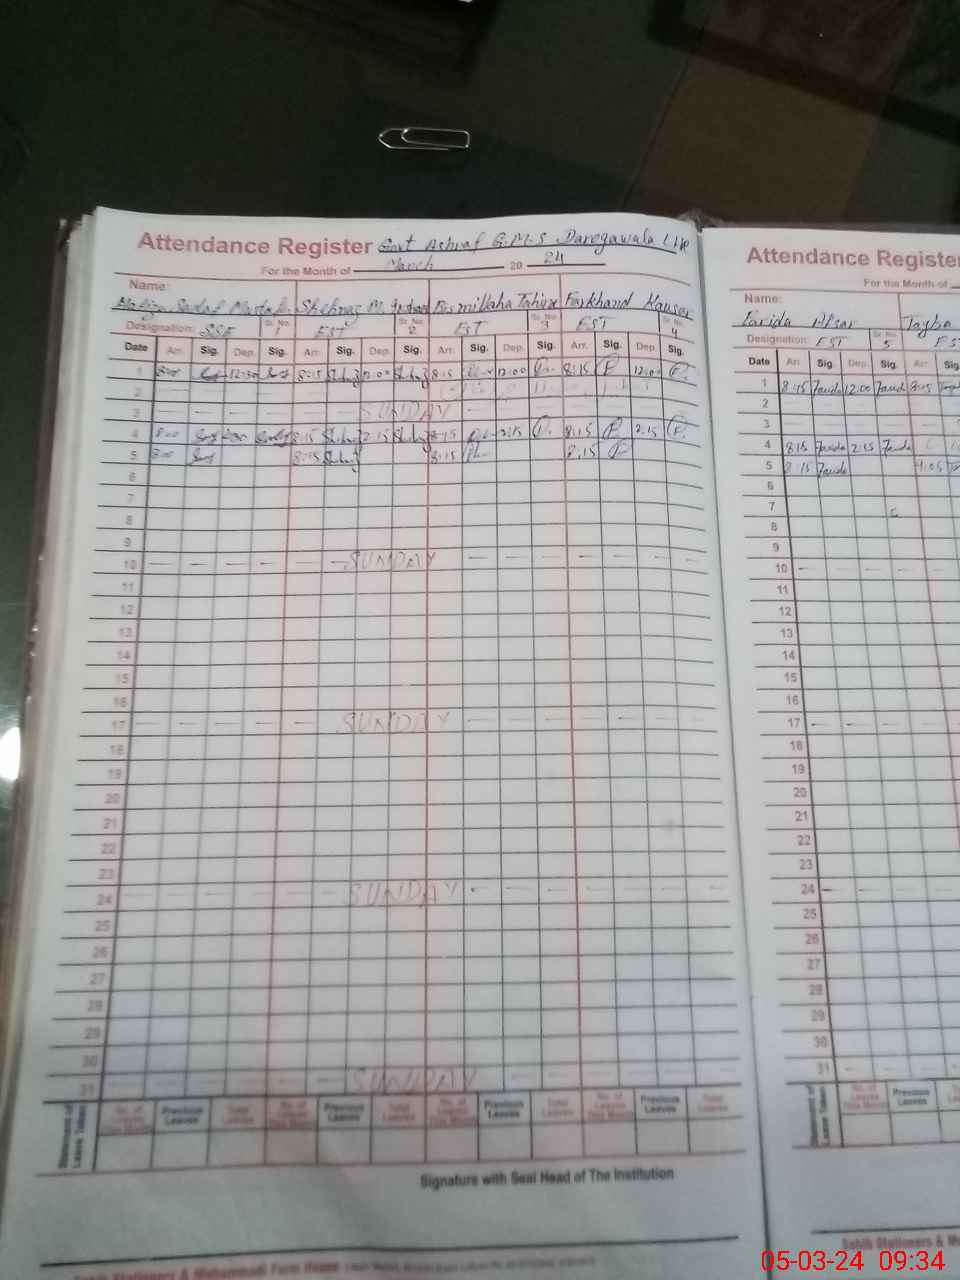 Attendance Register Govt Ashraf G.M.S Darogawala LHR
For the Month of March 20 24
Name:
Sadaf Shehnaz M. Bismillaha Tahira Farkhand Kausar
Designation: SSE Sr. No. 1 EST Sr. No. 2 EST Sr. No. 3 EST Sr. No. 4
Date Arr. Sig. Dep. Sig. Arr. Sig. Dep. Sig. Arr. Sig. Dep. Sig. Arr. Sig. Dep. Sig.
1 8:00 12:30 8:15 12:00 8:15 12:00 8:15 12:00
2
3 SUNDAY
4 8:00 8:15 2:15 8:15 2:15 8:15 2:15
5 8:00 8:15 8:15 8:15
6
7
8
9
10 SUNDAY
11
12
13
14
15
16
17 SUNDAY
18
19
20
21
22
23
24 SUNDAY
25
26
27
28
29
30
31 SUNDAY
Statement of Leave Taken
No. of Leaves This Month Previous Leaves Total Leaves No. of Leaves This Month Previous Leaves Total Leaves No. of Leaves This Month Previous Leaves Total Leaves No. of Leaves This Month Previous Leaves Total Leaves
Signature with Seal Head of The Institution
Sahib Stationers & Mohammadi Form House
Attendance Register
For the Month of
Name:
Farida Afsar Tayba
Designation: EST Sr. No. 5 EST
Date Arr. Sig. Dep. Sig. Arr. Sig.
1 8:15 Farida 12:00 Farida 8:15
2
3
4 8:15 Farida 2:15 Farida
5 8:15 Farida
6
7
8
9
10
11
12
13
14
15
16
17
18
19
20
21
22
23
24
25
26
27
28
29
30
31
Statement of Leave Taken
No. of Leaves This Month Previous Leaves
Sahib Stationers &
05-03-24 09:34